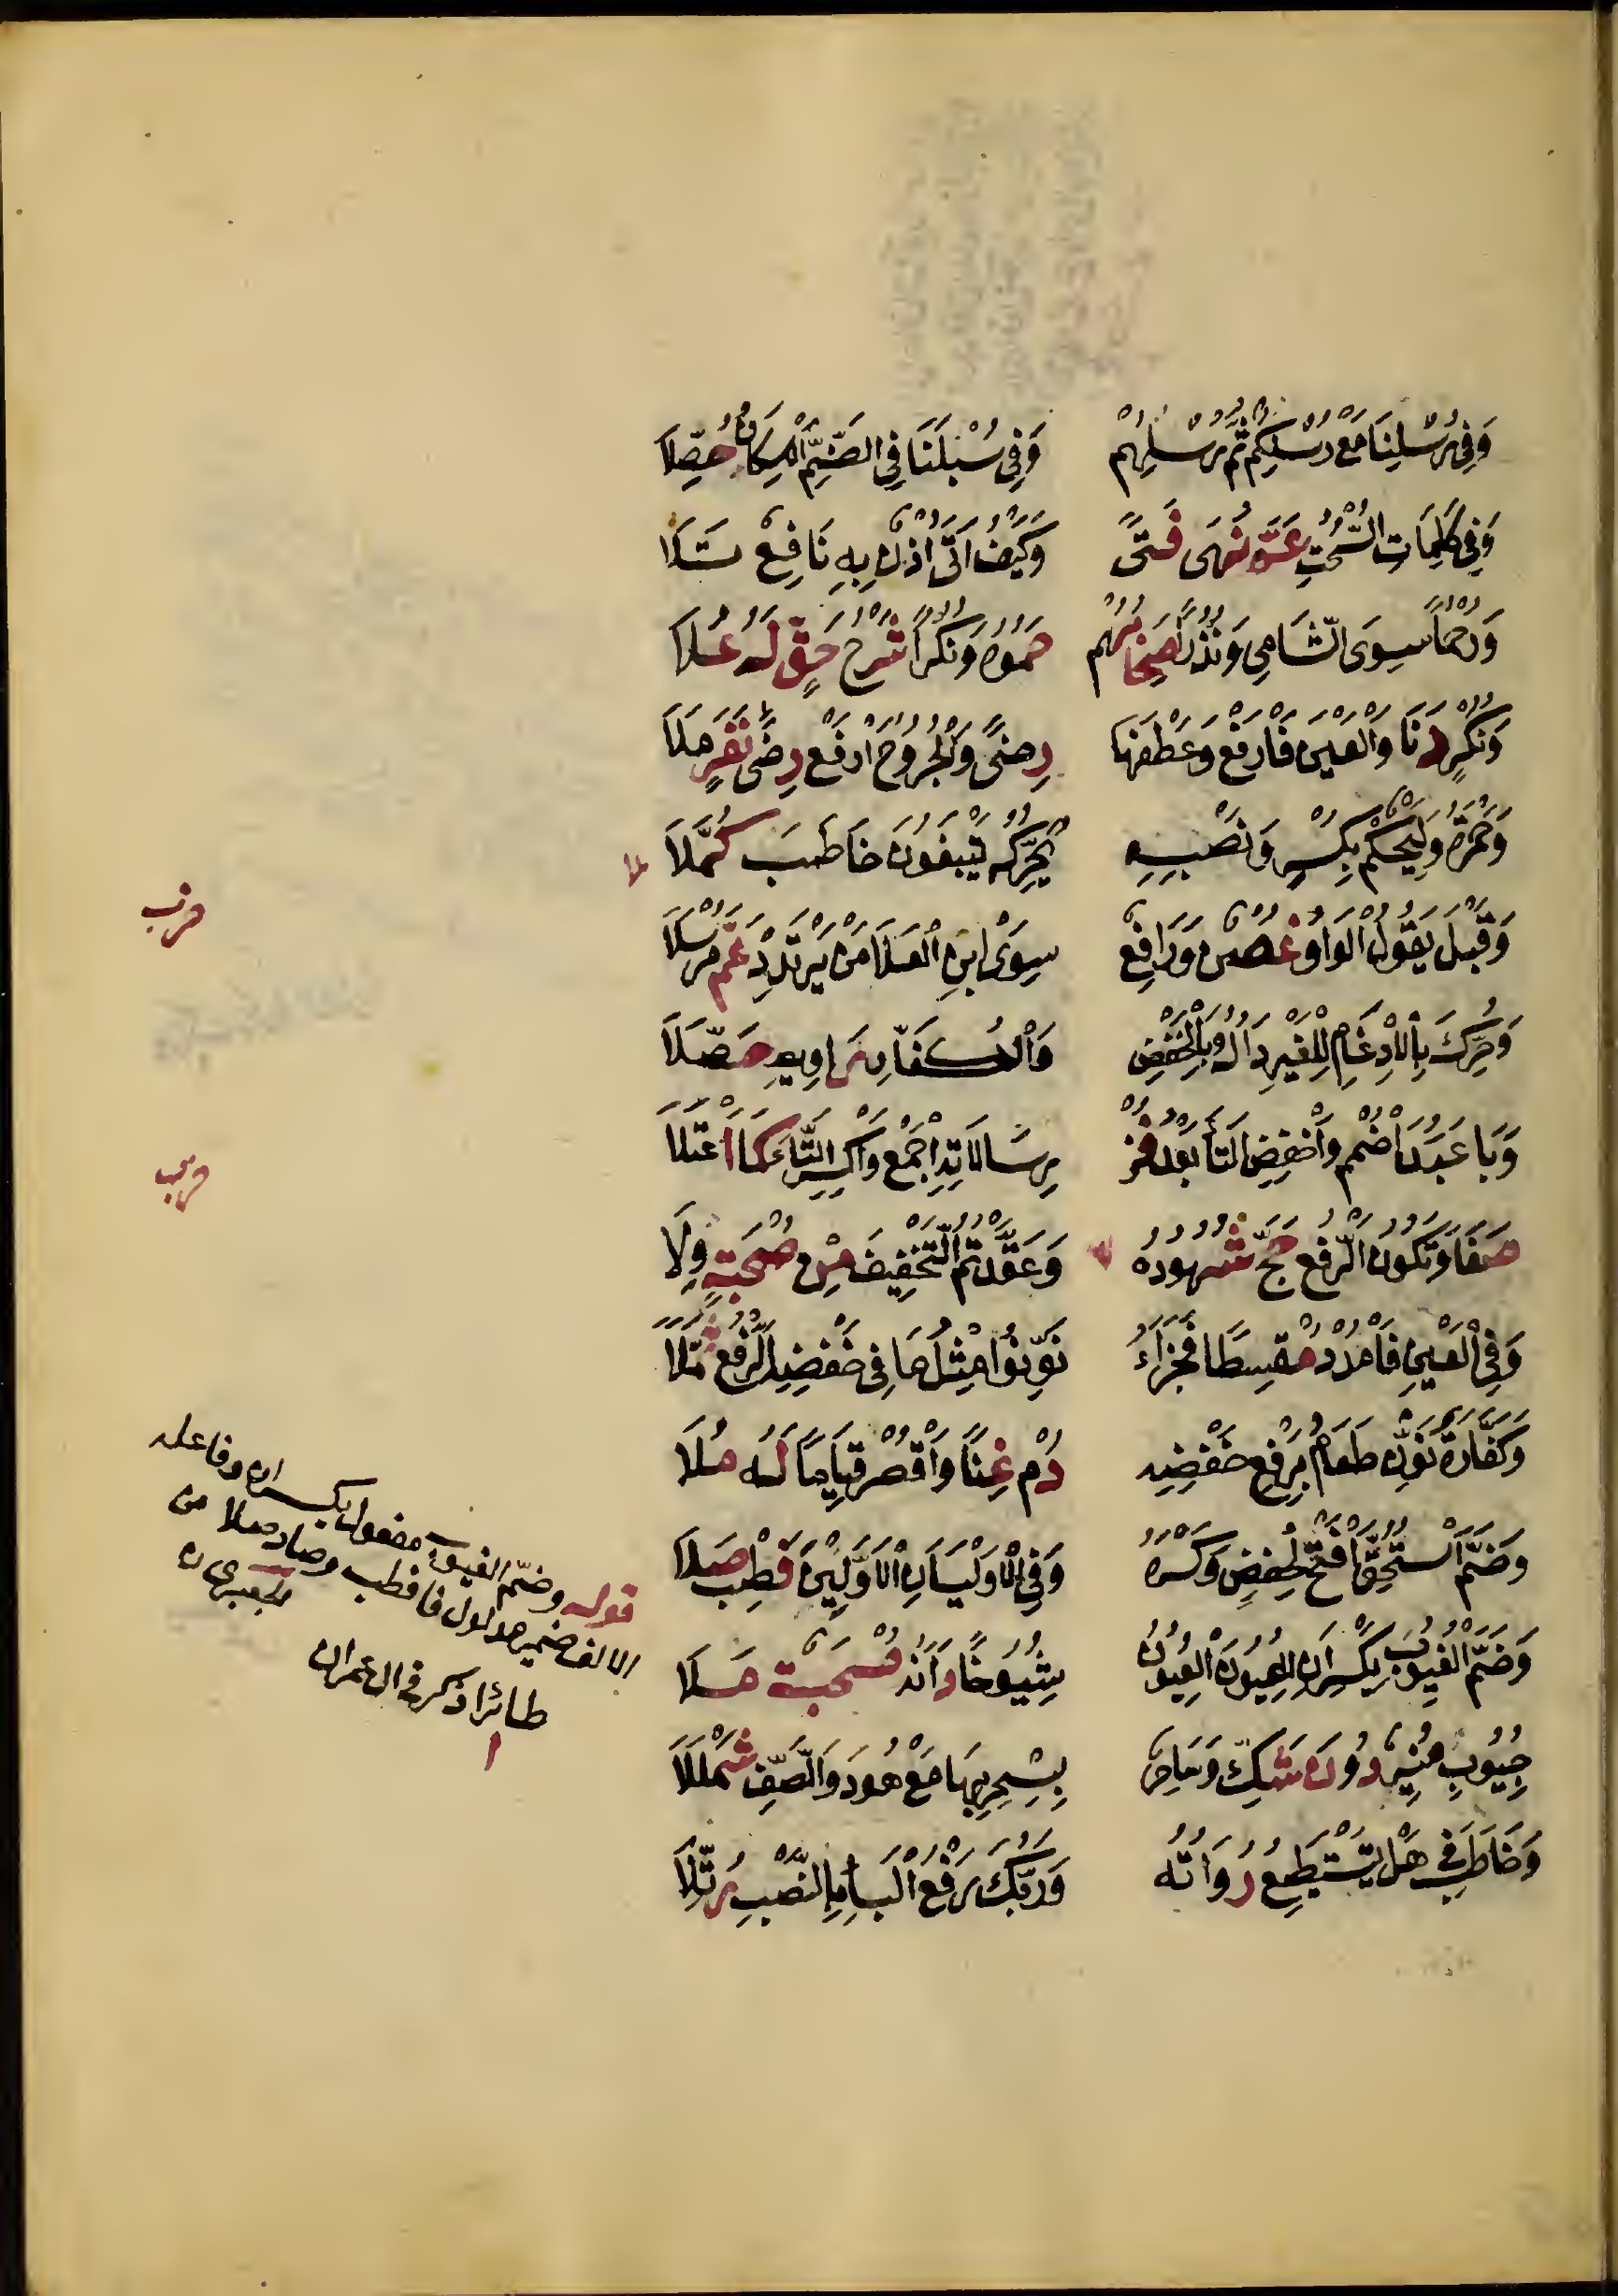 وَفِي رُسْلِنَا مَعْ رُسْلِكُمْ ثُمَّ رُسْلِهُمْ وَفِي سُبْلَنَا فِي الضَّمِّ الْاِسْكَانُ حُصِّلَا
وَفِي كَلِمَاتِ السُّحْتِ عَمَّ نُهَى فَتًى وَكَيْفَ اَتَى اُذْنٌ بِهِ نَافِعٌ تَلَا
وَرُحْمًا سِوَى الشَّامِي وَنُذْرًا صِحَابُهُمْ حَمَوْهُ وَنُكْرًا شَرْعُ حَقٍّ لَهُ عُلَا
وَنُكْرٍ دَنَا وَالْعَيْنَ فَارْفَعْ وَعَطْفَهَا رِضًى وَالْجُرُوحُ ارْفَعْ رِضَى نَفَرٍ مَلَا
وَحَمْزَةُ وَلْيَحْكُمْ بِكَسْرٍ وَنَصْبِهِ يُحَرِّكُهُ تَبْغُونَ خَاطَبَ كُمَّلَا
وَقَبْلَ يَقُولُ الْوَاوُ غُصْنٌ وَرَافِعٌ سِوَى ابْنِ الْعَلَا مَنْ يَرْتَدِدْ عَمَّ مُرْسَلَا
حرف
وَحُرِّكَ بِالْاِدْغَامِ لِلْغَيْرِ دَالُهُ وَبِالْخَفْضِ وَالْكُفَّارِ رَاوِيهِ حَصَّلَا
وَبَا عَبَدَ اضْمُمْ وَاخْفِضِ التَّا بَعْدُ فُزْ رِسَالَاتِهِ اجْمَعْ وَاكْسِرِ التَّا كَمَا اعْتَلَا
صَفَا وَتَكُونُ الرَّفْعُ حَجَّ شُهُودُهُ وَعَقَّدْتُمُ التَّخْفِيفُ مِنْ صُحْبَةٍ وِلَا
وَفِي الْعَيْنِ فَامْدُدْ مُقْسِطًا فَجَزَاءُ نَوِّنُوا مِثْلُ مَا فِي خَفْضِهِ الرَّفْعُ ثُمَّلَا
وَكَفَّارَةٌ نَوِّنْ طَعَامُ بِرَفْعِ خَفْضِهِ دُمْ غِنًا وَاقْصُرْ قِيَامًا لَهُ مُلَا
وَضَمَّ اسْتُحِقَّ افْتَحْ لِحَفْصٍ وَكَسْرَهُ وَفِي الْاَوْلَيَانِ الْاَوَّلِينَ فَطِبْ صِلَا
وَضَمَّ الْغُيُوبِ يَكْسِرَانِ الْعُيُونَ الْعُيُونِ شُيُوخًا دَانَهُ صُحْبَةٌ مَلَا
جُيُوبِ مُنِيرٌ دُونَ شَكٍّ وَسَاحِرٌ بِسِحْرٍ بِهَا مَعْ هُودَ وَالصَّفِّ شَمْلَلَا
وَخَاطَبَ فِي هَلْ يَسْتَطِيعُ رُوَاتُهُ وَرَبُّكَ رَفْعُ الْبَاءِ بِالنَّصْبِ رُتِّلَا
قوله وضمّ الغيوب مفعول يكسران وفاعله
الالف ضمير مدلول فا فطب وصاد صلا من
طائرا ذكر في ال عمران